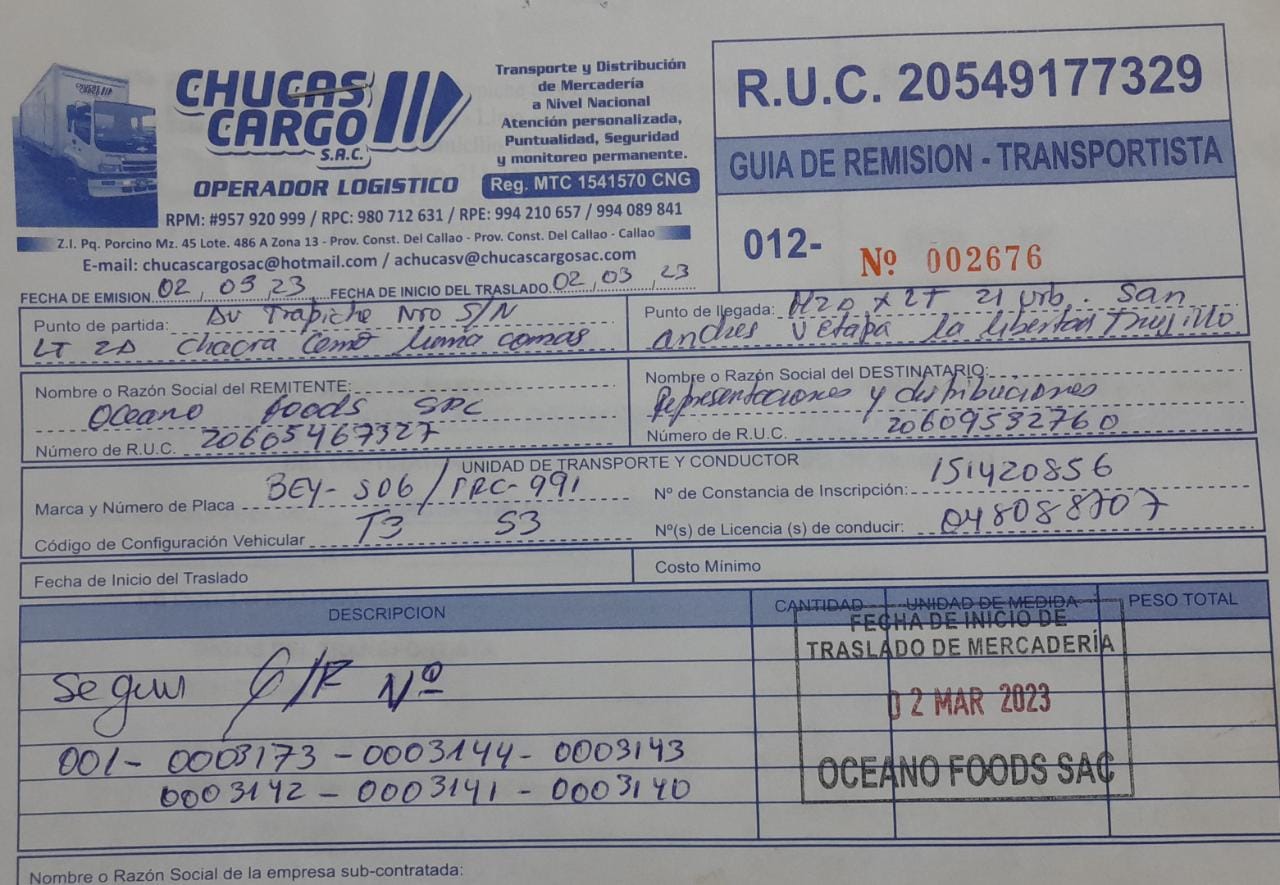 CHUCAS
CARGO
S.A.C.
OPERADOR LOGISTICO
Transporte y Distribución
de Mercadería
a Nivel Nacional
Atención personalizada,
Puntualidad, Seguridad
y monitoreo permanente.
Reg. MTC 1541570 CNG
RPM: #957 920 999 / RPC: 980 712 631 / RPE: 994 210 657 / 994 089 841
Z.I. Pq. Porcino Mz. 45 Lote. 486 A Zona 13 - Prov. Const. Del Callao - Prov. Const. Del Callao - Callao
E-mail: chucascargosac@hotmail.com / achucasv@chucascargosac.com
R.U.C. 20549177329
GUIA DE REMISION - TRANSPORTISTA
012- Nº 002676
FECHA DE EMISION 02 / 03 / 23 FECHA DE INICIO DEL TRASLADO 02 / 03 / 23
Punto de partida: Av Trapiche Nro S/N
LT 2D chacra Cerro Lima comas
Punto de llegada: MZD X LT 21 urb. San
andres V etapa la libertad Trujillo
Nombre o Razón Social del REMITENTE:
Oceano foods SAC
Número de R.U.C. 20605467327
Nombre o Razón Social del DESTINATARIO:
Representaciones y distribuciones
Número de R.U.C. 20609532760
UNIDAD DE TRANSPORTE Y CONDUCTOR
Marca y Número de Placa BEY-S06 / TRC-991
Nº de Constancia de Inscripción: 151420856
Código de Configuración Vehicular T3 S3
Nº(s) de Licencia (s) de conducir: Q48088707
Fecha de Inicio del Traslado
Costo Mínimo
DESCRIPCION CANTIDAD UNIDAD DE MEDIDA PESO TOTAL
Segun G/R Nº
001- 0003173 - 0003144 - 0003143
0003142 - 0003141 - 0003140
FECHA DE INICIO DE
TRASLADO DE MERCADERÍA
02 MAR 2023
OCEANO FOODS SAC
Nombre o Razón Social de la empresa sub-contratada: